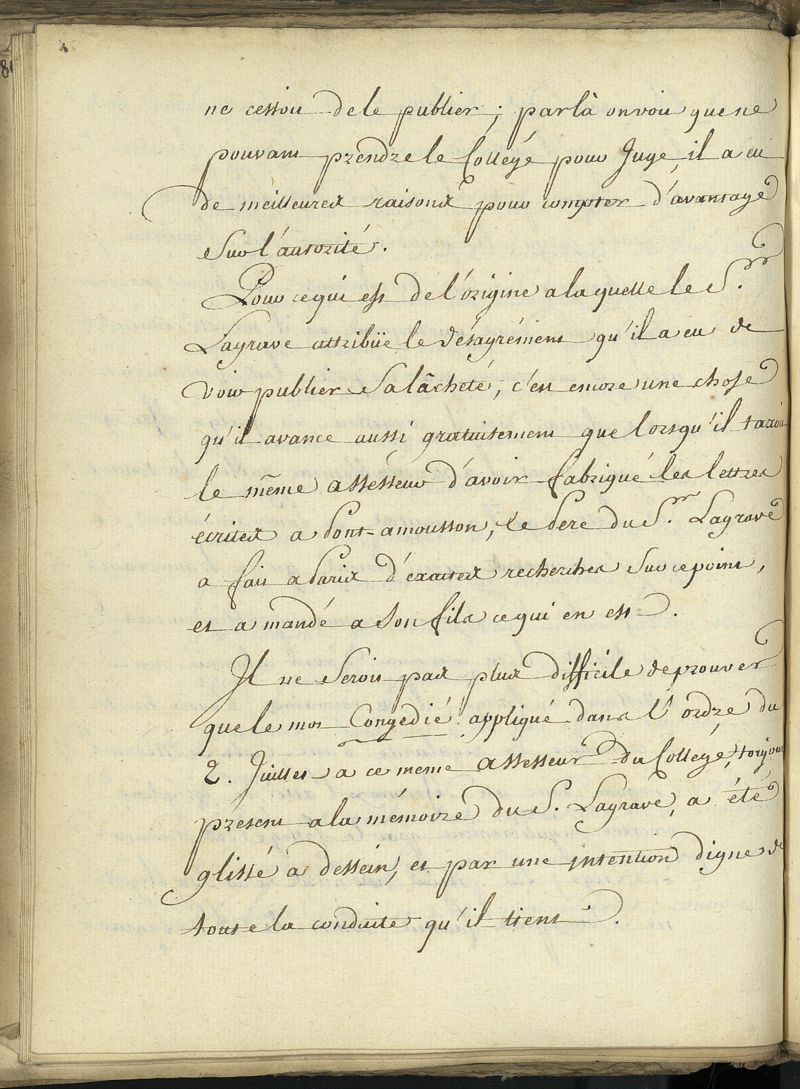 ne cessoit de le publier ; par là on voit que ne
pouvant prendre le Collegé pour Juge, il a eu
de meilleures raisons pour compter d'avantage
Sur l'autorité.
Pour ce qui est de l'origine a la quelle le S.r
Lagrave attribüe le désagrément qu'il a eu de
voir publier Sa lâcheté, c'est encore une chose
qu'il avance aussi gratuitement que lorsqu'il taxoit
le même assésseur d'avoir fabriqué les lettres
écrites a Pont-amousson, le Pere du S.r Lagrave
a fait a Paris d'éxactes recherches Sur ce point,
et a mandé a Son fils ce qui en est.
Il ne Seroit pas plus difficile de prouver
que le mot Congédié appliqué dans l'ordre du
2. Juillet a ce meme assesseur du Collegé, toujours
présent a la mémoire du S. Lagrave, a été
glissé à dessein, et par une intention digne de
toute la conduite qu'il tient.